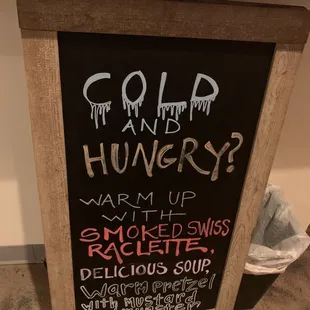 COLD
AND
HUNGRY?
WARM UP
WITH
SMOKED SWISS
RACLETTE,
DELICIOUS SOUP,
Warm Pretzel
with Mustard